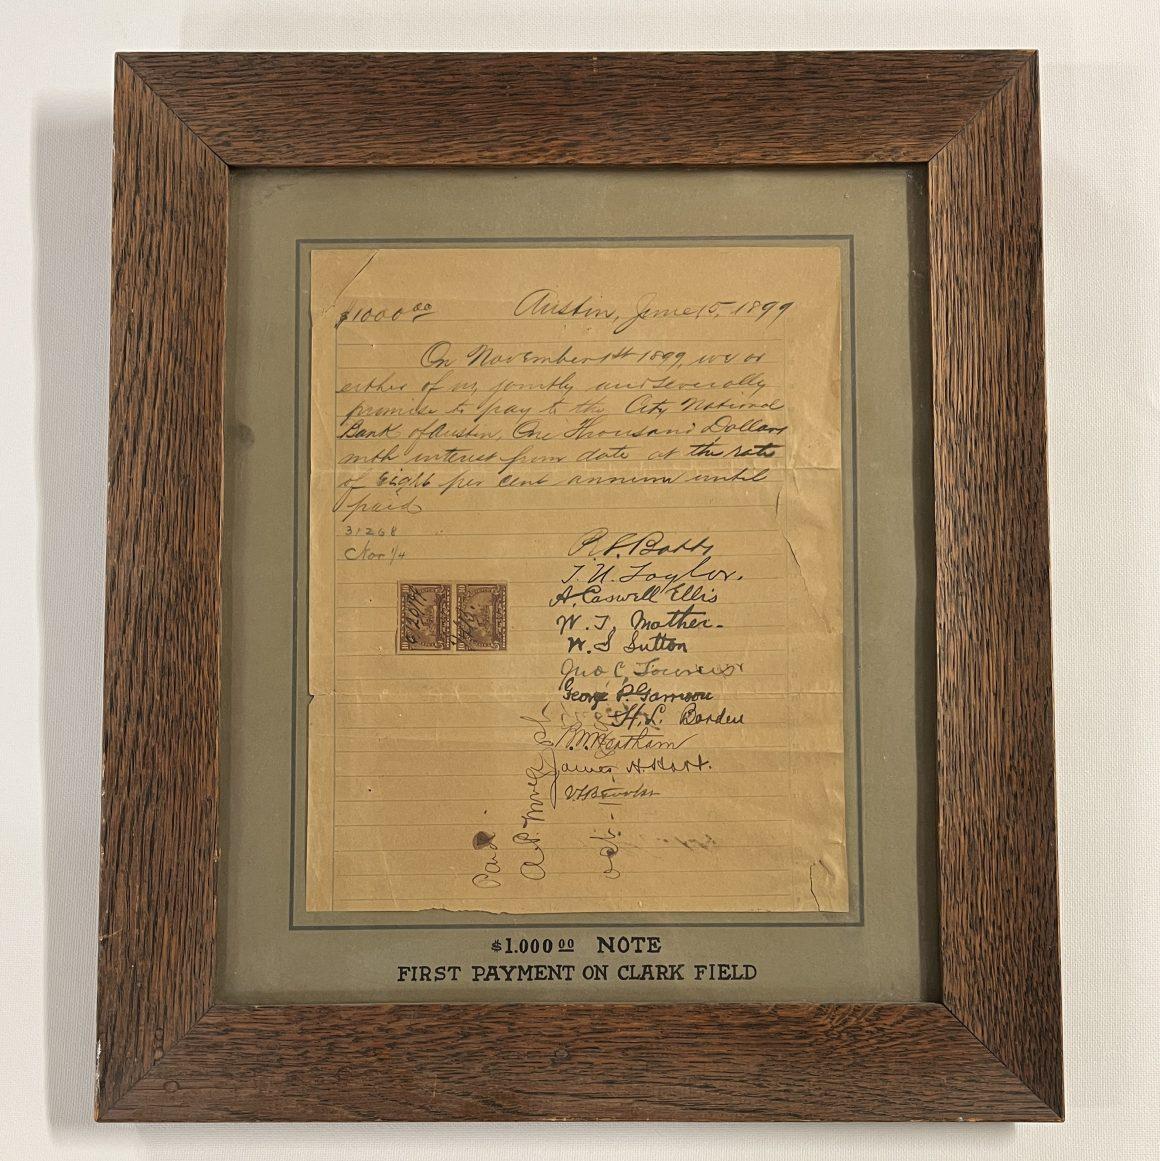 $1000.00 Austin, June 15, 1899
On November 1st 1899, we or
either of us jointly and severally
promise to pay to the City National
Bank of Austin, One Thousand Dollars
with interest from date at the rate
of Eight per cent annum until
paid
31268
Nov 1/4
T. U. Taylor.
A. Caswell Ellis
W. T. Mather.
W. S Sutton
Jno C. Townes
George P. Garrison
H. L. Borden
James H. Hart.
Paid
$1.000 00 NOTE
FIRST PAYMENT ON CLARK FIELD